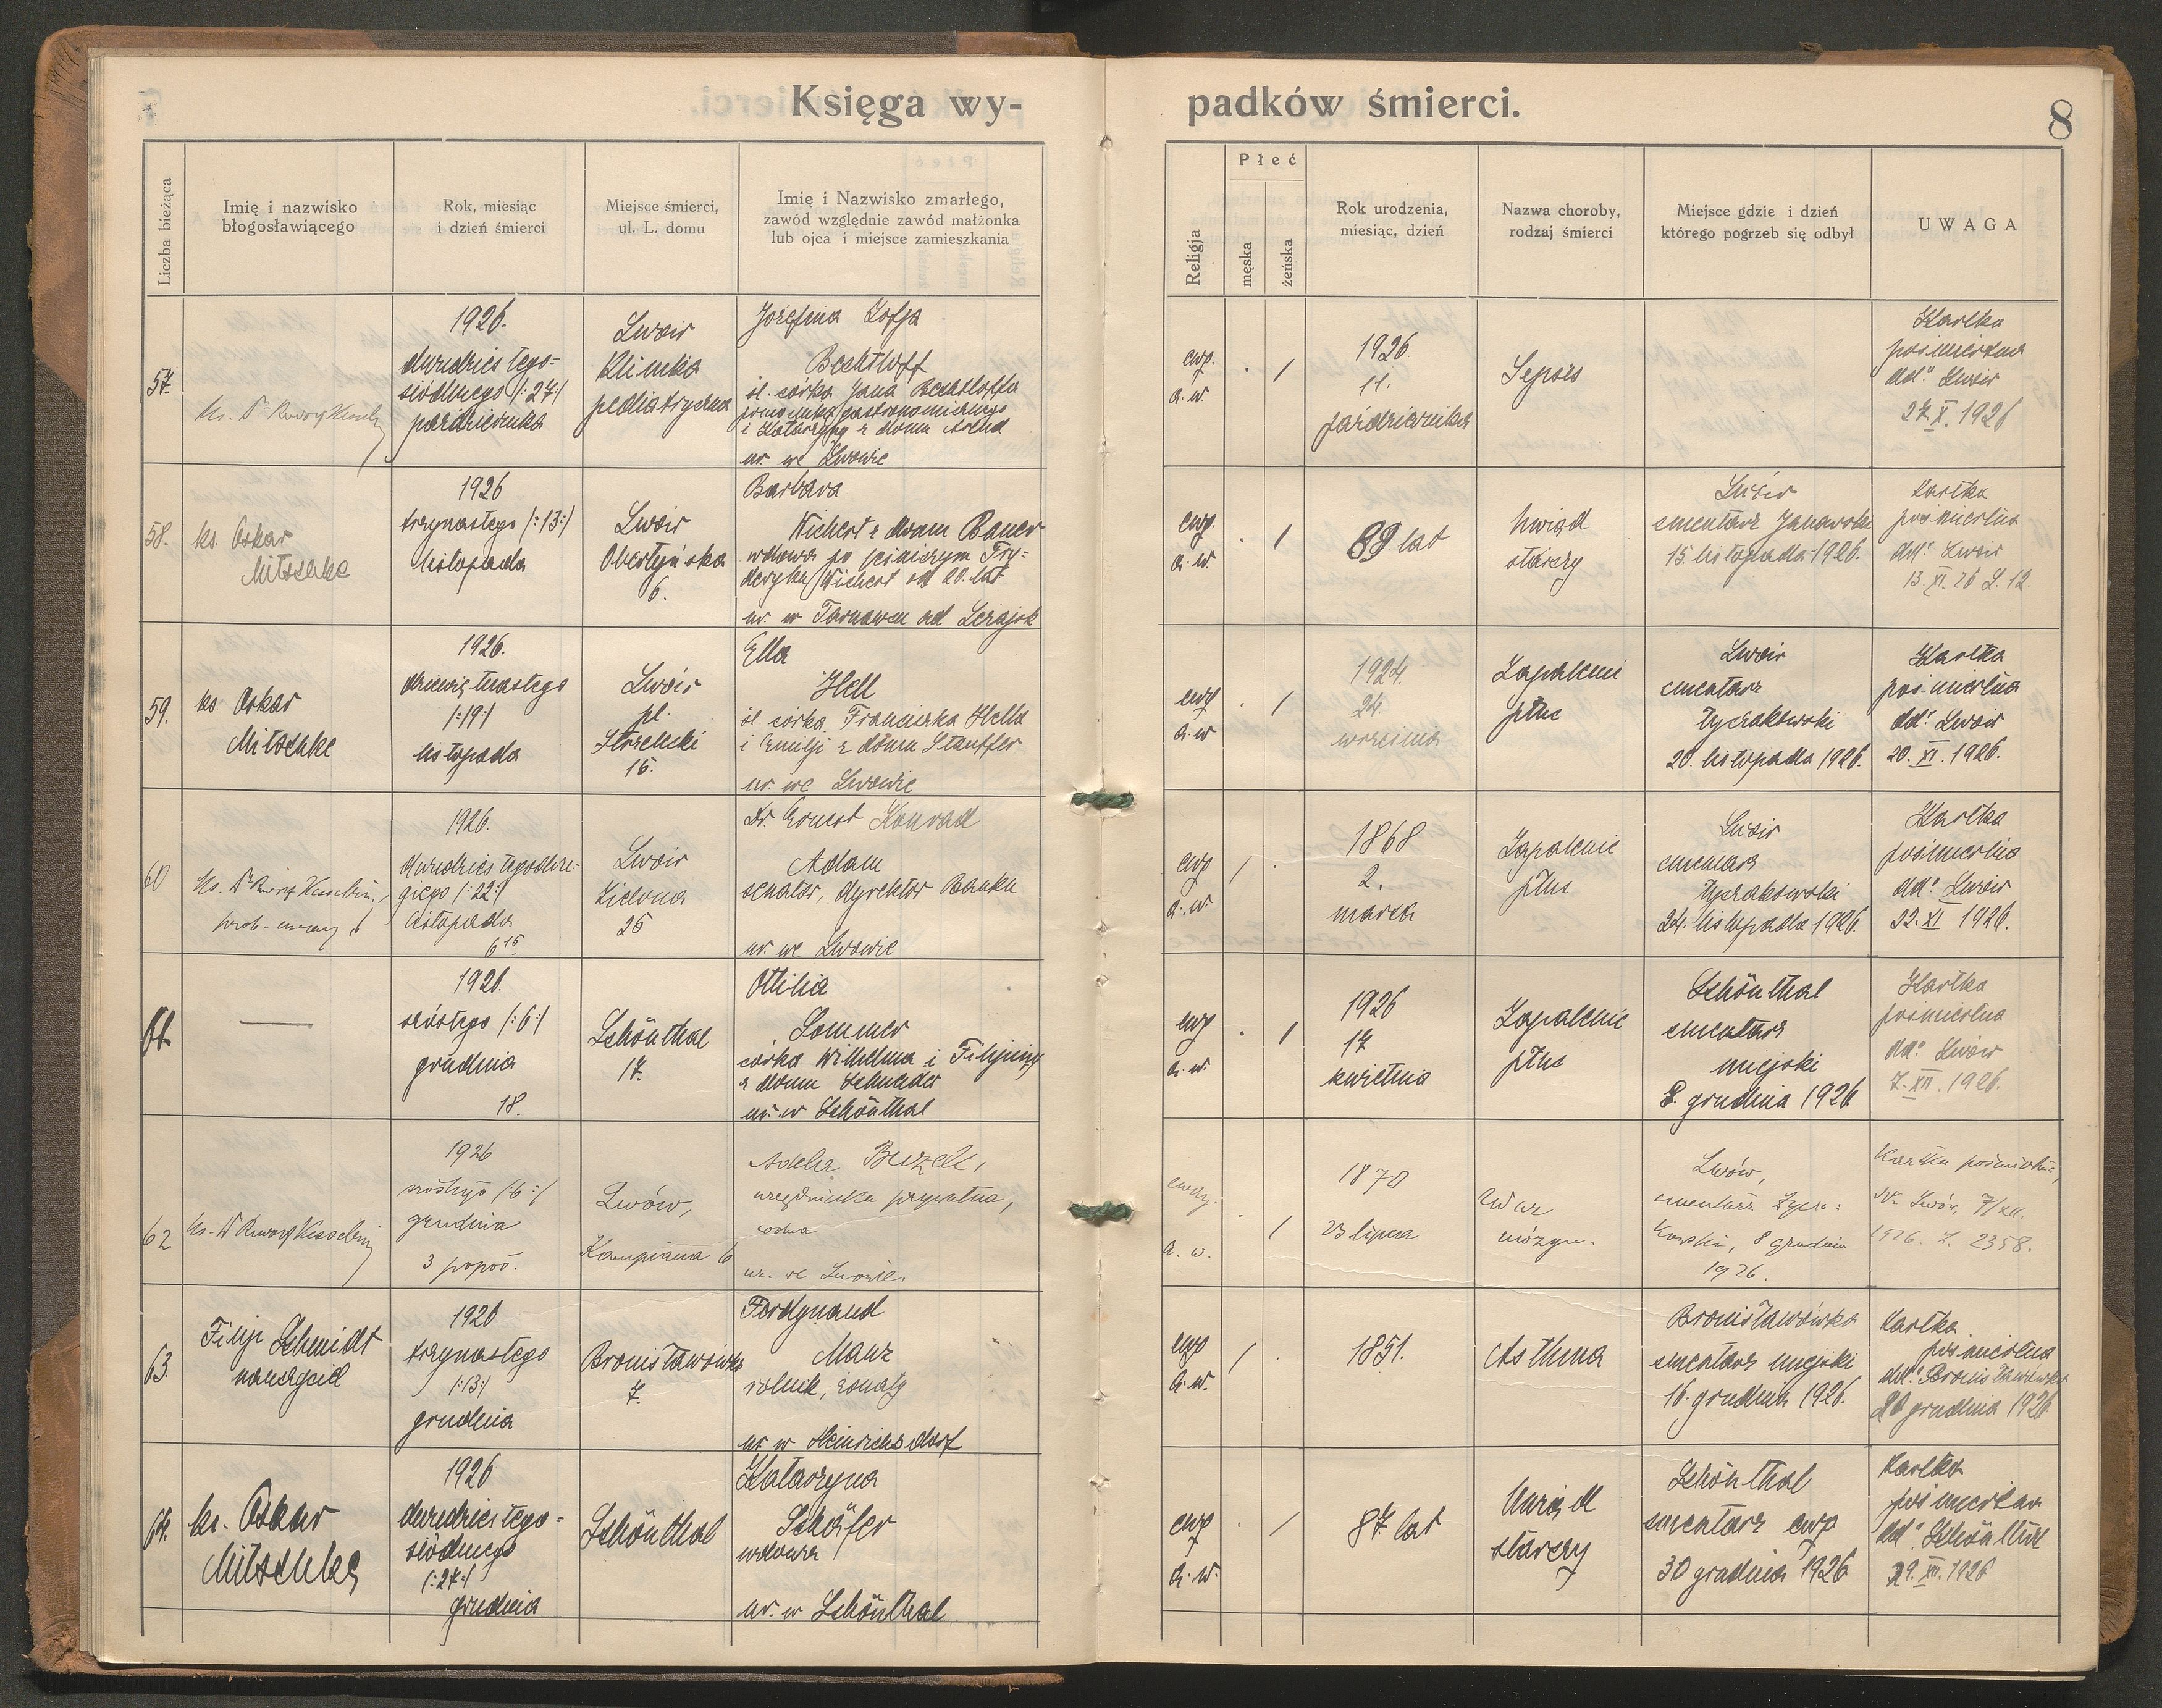 Księga wy-
padków śmierci.
8
Liczba bieżąca
Imię i nazwisko
błogosławiącego
Rok, miesiąc
i dzień śmierci
Miejsce śmierci,
ul. L. domu
Imię i Nazwisko zmarłego,
zawód względnie zawód małżonka
lub ojca i miejsce zamieszkania
Religja
Płeć
męska
żeńska
Rok urodzenia,
miesiąc, dzień
Nazwa choroby,
rodzaj śmierci
Miejsce gdzie i dzień
którego pogrzeb się odbył
UWAGA
57.
ks. Dr
1926.
dwudziestego-
siódmego /:27:/
października
Lwów
Klinika
pediatryczna
Józefina Zofja
Bechtloff
śl. córka Jana Bechtloffa
gastronomicznego
i Katarzyny z domu
ur. we Lwowie
ewg.
a. w
. /
1926.
11.
października
Sepsis
Kartka
pośmiertna
dd. Lwów
27.X.1926
58.
ks. Oskar
Mitschke
1926
trzynastego /:13:/
listopada
Lwów
Obertyńska
6.
Barbara
Wichert z domu Bauer
wdowa po Fry-
deryku Wichert od 20. lat
ur. w Tarnawcu ad Leżajsk
ewg.
a. w.
. /
89 lat
Uwiąd
starczy
Lwów
cmentarz Janowski
15 listopada 1926.
Kartka
pośmiertna
dd. Lwów
13.XI.26 L.12.
59.
ks Oskar
Mitschke
1926.
dziewiętnastego
/:19:/
listopada
Lwów
pl.
Strzelecki
15.
Ella
Hell
śl. córka Franciszka Hella
i Emilji z domu Stauffer
ur. we Lwowie
ewg
a. w
. /
1924.
24.
września
Zapalenie
płuc
Lwów
cmentarz
łyczakowski
20. listopada 1926.
Kartka
pośmiertna
dd. Lwów
20.XI.1926.
60
ks. Dr Kesselring,
1926.
dwudziestegodru-
giego /:22:/
listopada
6 15
Lwów
Zielona
25
Dr. Ernest Konrad
Adam
senator, dyrektor Banku
ur. we Lwowie
ewg
a. w.
/ .
1868
2.
marca
Zapalenie
płuc
Lwów
cmentarz
łyczakowski
24. listopada 1926.
Kartka
pośmiertna
dd. Lwów
22.XI 1926.
61.
—
1926.
szóstego /:6:/
grudnia
18.
Schönthal
17.
Otilia
Sommer
córka Wilhelma i Filipiny
z domu Schneider
ur. w Schönthal
ewg
a. w.
. /
1926
17
kwietnia
Zapalenie
płuc
Schönthal
cmentarz
miejski
8. grudnia 1926
Kartka
pośmiertna
dd. Lwów
7.XII.1926.
62
ks. Dr Kesselring
1926
szóstego /:6:/
grudnia
3 popoł.
Lwów,
6
Adela
urzędniczka prywatna,
wolna
ur. we Lwowie.
ewang.
a. w.
/
1870
23 lipca
Udar
mózgu.
Lwów,
cmentarz Łycza:
kowski, 8 grudnia
1926.
Kartka pośmiertna,
dd. Lwów, 7/XII.
1926. L. 2358.
63.
Filip Schmidt
nauczyciel
1926
trzynastego
/:13:/
grudnia
Bronisławówka
7.
Ferdynand
Manz
rolnik, żonaty
ur w Heinrichsdorf
ewg
a. w.
/ .
1851.
Asthma
Bronisławówka
cmentarz miejski
16. grudnia 1926.
Kartka
pośmiertna
dd. Bronisławówka
20 grudnia 1926
64.
ks. Oskar
Mitschke
1926
dwudziestego-
siódmego
/:27:/
grudnia
Schönthal
Katarzyna
Schäfer
wdowa
ur. w Schönthal
ewg
a. w.
. /
87 lat
Uwiąd
starczy
Schönthal
cmentarz ewg
30 grudnia 1926
Kartka
pośmiertna
dd. Schönthal
29.XII.1926